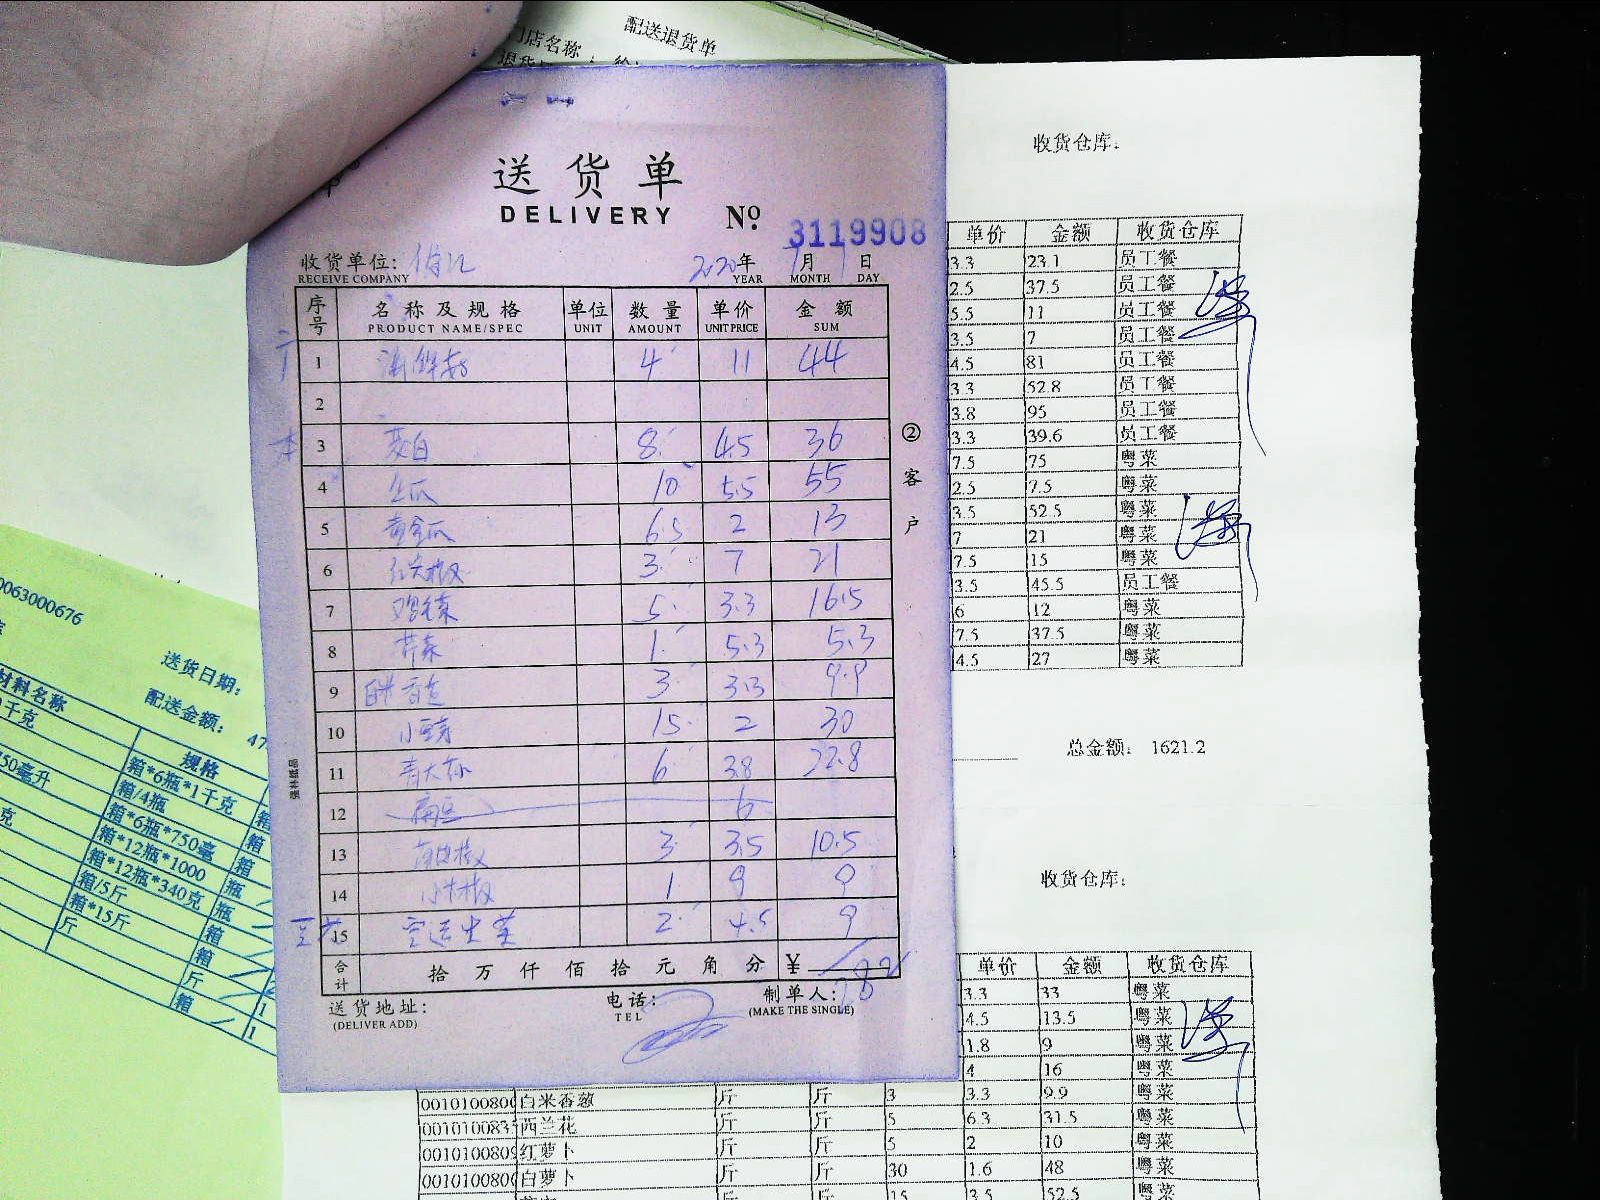 配送退货单
门店名称
送货单
DELIVERY
No. 3119908
收货单位:
RECEIVE COMPANY
2020年 月 日
YEAR MONTH DAY
序号 名称及规格 单位 数量 单价 金额
PRODUCT NAME/SPEC UNIT AMOUNT UNIT PRICE SUM
1 海鲜菇 4 11 44
2
3 茭白 8 4.5 36
4 丝瓜 10 5.5 55
5 黄金瓜 6.5 2 13
6 红尖椒 3 7 21
7 鸡毛菜 5 3.3 16.5
8 芹菜 1 5.3 5.3
9 白米香葱 3 3.3 9.9
10 小 15 2 30
11 青大椒 6 3.8 22.8
12 扁豆 6
13 3 3.5 10.5
14 小米椒 1 9 9
15 空运生菜 2 4.5 9
合计 拾万仟佰拾元角分 ¥
送货地址: 电话: 制单人:
(DELIVER ADD) TEL (MAKE THE SINGLE)
②客户
收货仓库:
单价 金额 收货仓库
3.3 23.1 员工餐
2.5 37.5 员工餐
5.5 11 员工餐
3.5 7 员工餐
4.5 81 员工餐
3.3 52.8 员工餐
3.8 95 员工餐
3.3 39.6 员工餐
7.5 75 粤菜
2.5 7.5 粤菜
3.5 52.5 粤菜
7 21 粤菜
7.5 15 粤菜
3.5 45.5 员工餐
6 12 粤菜
7.5 37.5 粤菜
4.5 27 粤菜
总金额: 1621.2
收货仓库:
单价 金额 收货仓库
3.3 33 粤菜
4.5 13.5 粤菜
1.8 9 粤菜
4 16 粤菜
白米香葱 斤 斤 3 3.3 9.9 粤菜
西兰花 斤 斤 5 6.3 31.5 粤菜
红萝卜 斤 斤 5 2 10 粤菜
白萝卜 斤 斤 30 1.6 48 粤菜
斤 斤 15 3.5 52.5 粤菜
0063000676
送货日期:
配送金额: 47
材料名称 规格
千克 箱*6瓶*1千克 箱
750毫升 箱/4瓶 箱
克 箱*6瓶*750毫 箱
箱*12瓶*1000 瓶
箱*12瓶*340克 瓶
箱/5斤 箱
箱*15斤 箱
斤 斤 1
箱 1